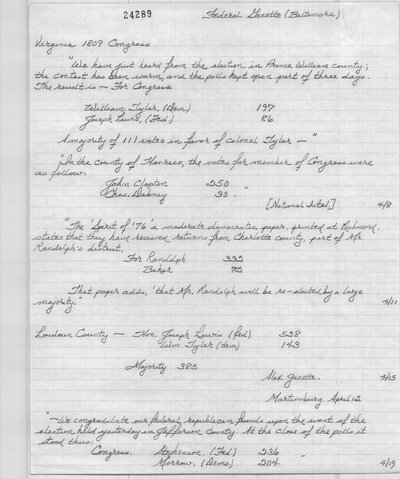 24289
Federal Gazette (Baltimore)
Virginia 1809 Congress
"We have just heard from the election in Prince William county;
the contest has been warm, and the polls kept open part of three days.
The result is — For Congress
William Tyler, (Dem) 197
Joseph Lewis, (Fed) 86
A majority of 111 votes in favor of Colonel Tyler —"
"In the county of Henrico, the votes for member of Congress were
as follow:
John Clopton 250
Chas. Dabney 30 "
[National Intel.] 4/8
"The 'Spirit of '76' a moderate democratic paper, printed at Richmond,
states that they have received returns from Charlotte county, part of Mr.
Randolph's district.
For Randolph
Baker
That paper adds, 'that Mr. Randolph will be re-elected by a large
majority." 4/11
Loudoun County — Hon. Joseph Lewis (fed) 528
Wm. Tyler (dem) 143
Majority 385
Alex. Gazette. 4/15
Martinsburg, April 12
"— We congradulate our federal republican friends upon the event of the
election held yesterday in Jefferson County. At the close of the polls it
stood thus:
Congress. Stephenson, (Fed) 236
Morrow, (Demo) 204 " 4/19